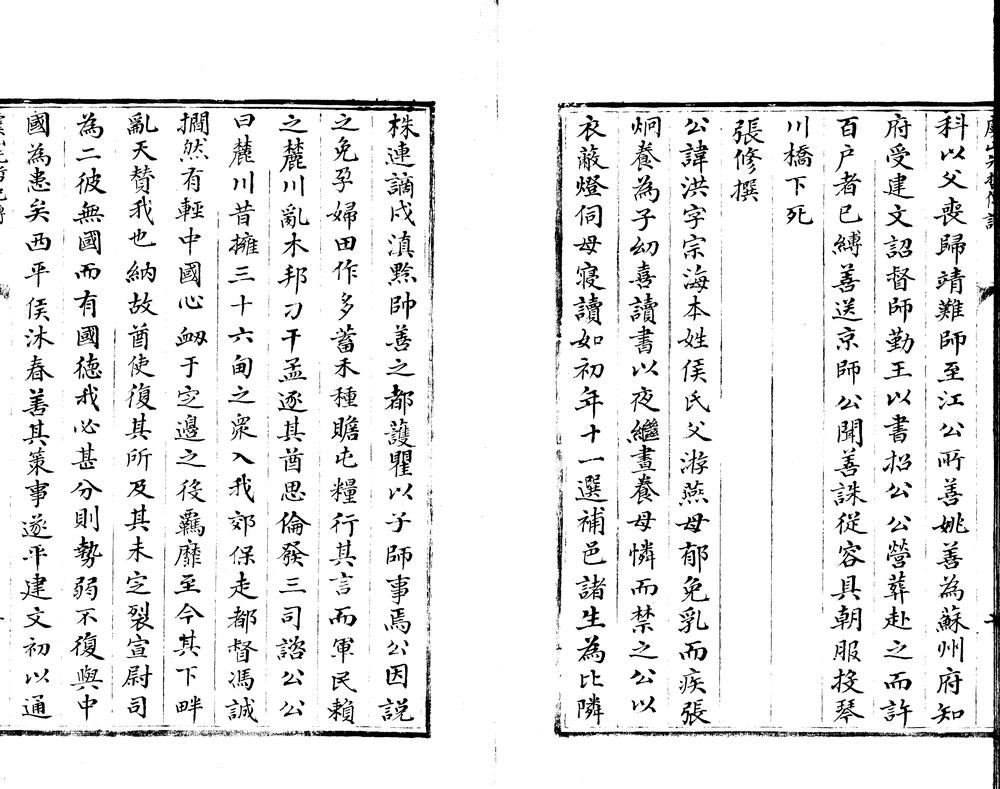 科以父喪歸靖難師至江公所善姚善為蘇州府知
府受建文詔督師勤王以書招公公營葬赴之而許
百户者已縛善送京師公聞善誅從容具朝服投琴
川橋下死
張修撰
公諱洪字宗海本姓侯氏父游燕母郁免乳而疾張
炯養為子幼喜讀書以夜繼晝養母憐而禁之公以
衣蔽燈伺母寢讀如初年十一選補邑諸生為比隣
株連謫戍滇黔帥善之都護瞿以子師事焉公因説
之免孕婦田作多蓄禾種贍屯糧行其言而軍民賴
之麓川亂木邦刁干孟逐其酋思倫發三司諮公公
曰麓川昔擁三十六甸之衆入我郊保走都督馮誠
撊然有輕中國心衂于定邊之後羈靡至今其下畔
亂天贊我也納故酋使復其所及其未定裂宣尉司
為二彼無國而有國德我必甚分則勢弱不復與中
國為患矣西平侯沐春善其策事遂平建文初以通